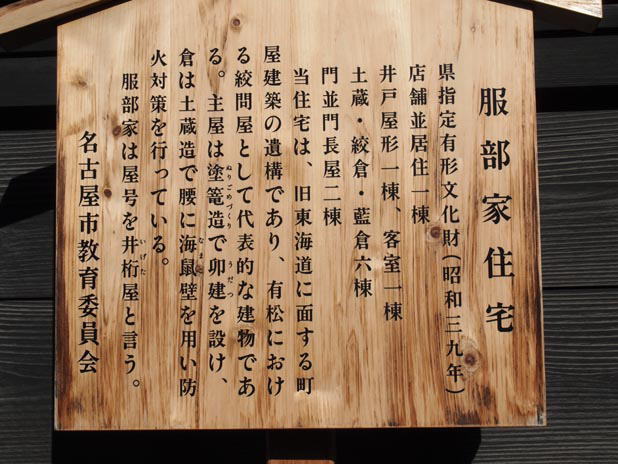 服部家住宅
県指定有形文化財(昭和三九年)
店舗並居住一棟
井戸屋形一棟、客室一棟
土蔵・絞倉・藍倉六棟
門並門長屋二棟
当住宅は、旧東海道に面する町
屋建築の遺構であり、有松におけ
る絞問屋として代表的な建物であ
る。主屋は塗篭造で卯建を設け、
ぬりごめづくり
うだつ
倉は土蔵造で腰に海鼠壁を用い防
なまこ
火対策を行っている。
服部家は屋号を井桁屋と言う。
いげた
名古屋市教育委員会